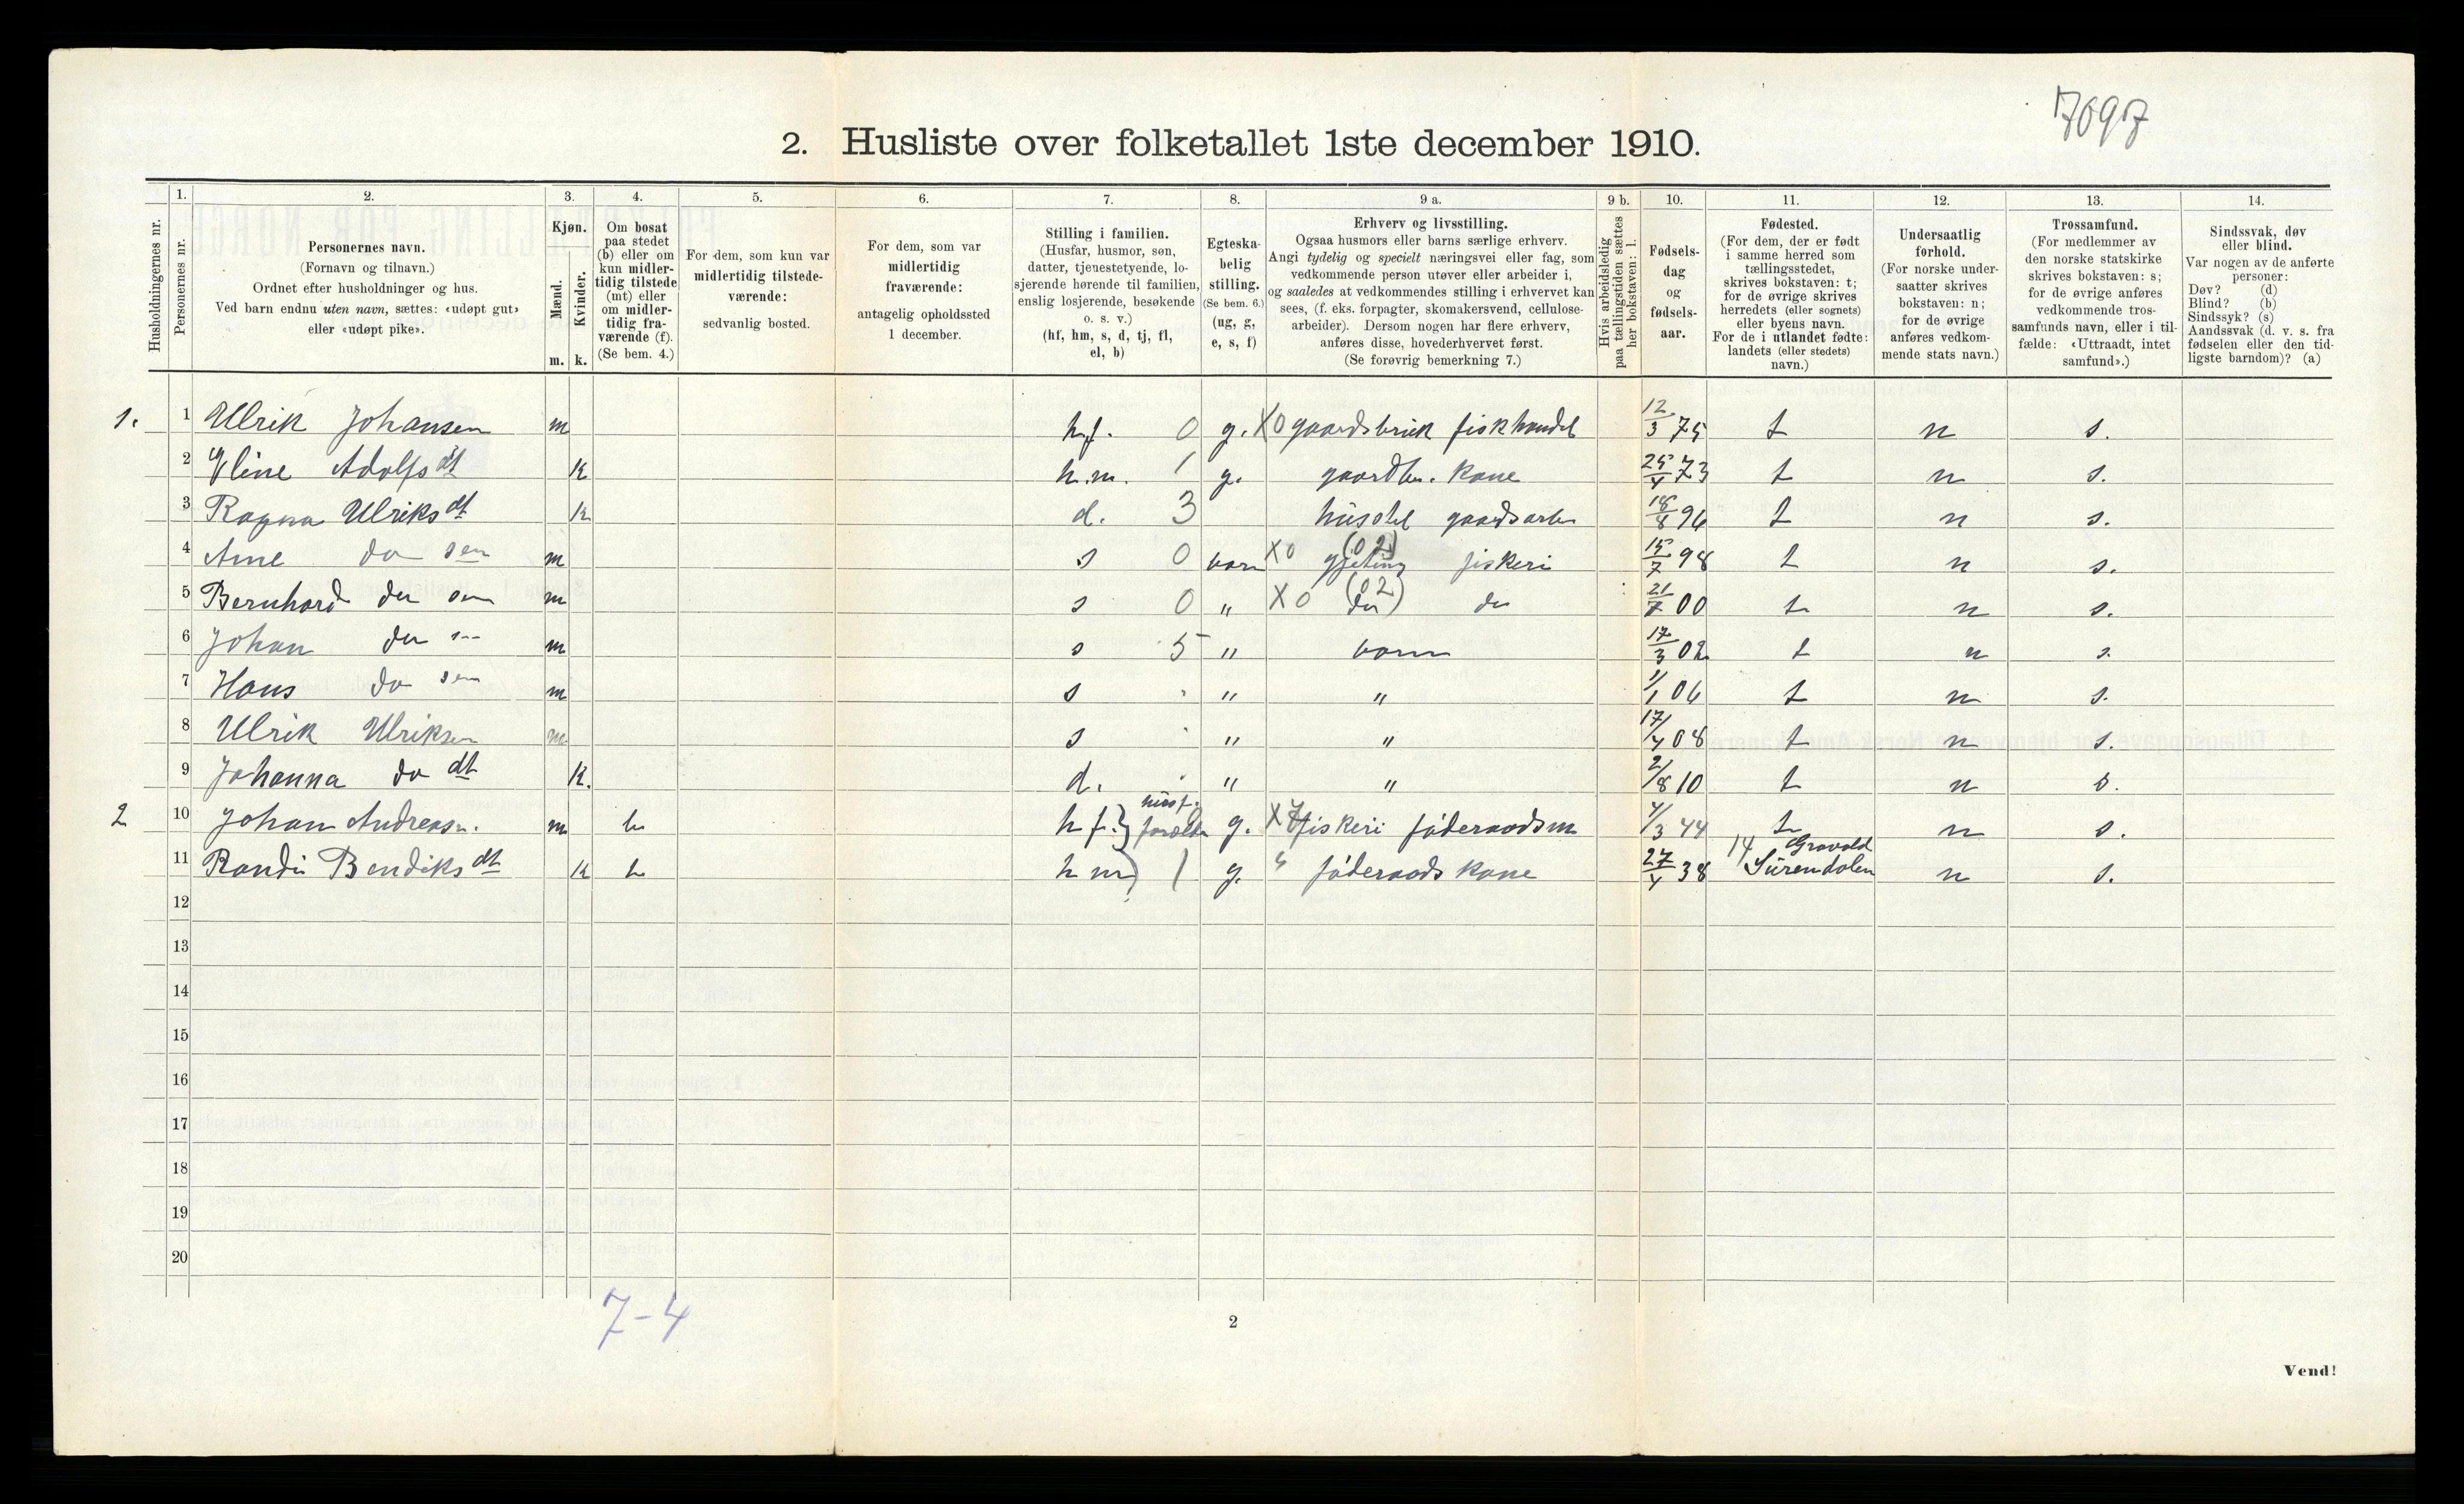 7097
2. Husliste over folketallet 1ste december 1910.
Husholdningernes nr.
1.
Personernes nr.
2.
Personernes navn.
(Fornavn og tilnavn.)
Ordnet efter husholdninger og hus.
Ved barn endnu uten navn, sættes: «udøpt gut»
eller «udøpt pike».
3.
Kjøn.
Mænd.
Kvinder.
m. k.
4.
Om bosat
paa stedet
(b) eller om
kun midler-
tidig tilstede
(mt) eller
om midler-
tidig fra-
værende (f).
(Se bem. 4.)
5.
For dem, som kun var
midlertidig tilstede-
værende:
sedvanlig bosted.
6.
For dem, som var
midlertidig
fraværende:
antagelig opholdssted
1 december.
7.
Stilling i familien.
(Husfar, husmor, søn,
datter, tjenestetyende, lo-
sjerende hørende til familien,
enslig losjerende, besøkende
o. s. v.)
(hf, hm, s, d, tj, fl,
el, b)
8.
Egteska-
belig
stilling.
(Se bem. 6.)
(ug, g,
e, s, f)
9 a.
Erhverv og livsstilling.
Ogsaa husmors eller barns særlige erhverv.
Angi tydelig og specielt næringsvei eller fag, som
vedkommende person utøver eller arbeider i,
og saaledes at vedkommendes stilling i erhvervet kan
sees, (f. eks. forpagter, skomakersvend, cellulose-
arbeider). Dersom nogen har flere erhverv,
anføres disse, hovederhvervet først.
(Se forøvrig bemerkning 7.)
9 b.
Hvis arbeidsledig
paa tællingstiden sættes
her bokstaven: l.
10.
Fødsels-
dag
og
fødsels-
aar.
11.
Fødested.
(For dem, der er født
i samme herred som
tællingsstedet,
skrives bokstaven: t;
for de øvrige skrives
herredets (eller sognets)
eller byens navn.
For de i utlandet fødte:
landets (eller stedets)
navn.)
12.
Undersaatlig
forhold.
(For norske under-
saatter skrives
bokstaven: n;
for de øvrige
anføres vedkom-
mende stats navn.)
13.
Trossamfund.
(For medlemmer av
den norske statskirke
skrives bokstaven: s;
for de øvrige anføres
vedkommende tros-
samfunds navn, eller i til-
fælde: «Uttraadt, intet
samfund».)
14.
Sindssvak, døv
eller blind.
Var nogen av de anførte
personer:
Døv? (d)
Blind? (b)
Sindssyk? (s)
Aandssvak (d. v. s. fra
fødselen eller den tid-
ligste barndom)? (a)
1. 1 Ulrik Johansen m h.f. 0 g. X0 gaardsbruk fiskhandel 12/3 75 t n s.
2 Eline Adolfsdt k h.m. 1 g. gaardbr. kone 25/4 73 t n s.
3 Ragna Ulriksdt k d. 3 husstel gaardsarb 18/8 96 t n s.
4 Arne do sen m s 0 barn X0 (02) gjeting fiskeri 15/7 98 t n s.
5 Bernhard do sen m s 0 " X0 (02) do do 21/7 00 t n s.
6 Johan do sen m s 5 " barn 17/3 02 t n s.
7 Hans do sen m s " " 1/1 06 t n s.
8 Ulrik Ulriksen m s " " 17/4 08 t n s.
9 Johanna do dt k. d. " " 2/8 10 t n s.
2 10 Johan Andreasn. m b h f. husf. forældr g. X7 fiskeri føderaadsm 4/3 44 t n s.
11 Randi Bendiksdt k b h m 1 g. føderaads kone 27/4 38 14 Surendalen n s.
12
13
14
15
16
17
18
19
20
7-4
2
Vend!